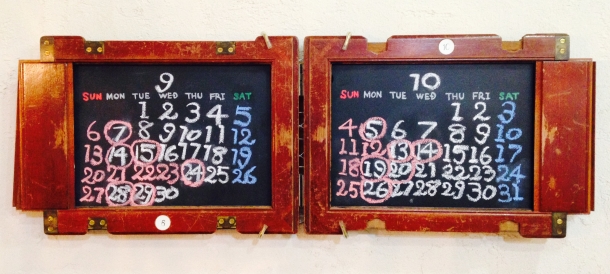 9
SUN MON TUE WED THU FRI SAT
1 2 3 4 5
6 7 8 9 10 11 12
13 14 15 16 17 18 19
20 21 22 23 24 25 26
27 28 29 30
5
X
10
SUN MON TUE WED THU FRI SAT
1 2 3
4 5 6 7 8 9 10
11 12 13 14 15 16 17
18 19 20 21 22 23 24
25 26 27 28 29 30 31